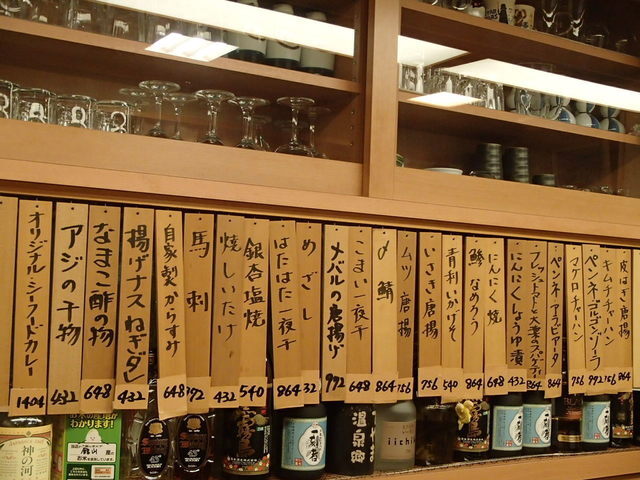 オリジナルシーフードカレー
1404
アジの干物
432
なまこ酢の物
648
揚げナス ねぎダレ
自家製からすみ
648
馬刺
焼しいたけ
432
銀杏塩焼
540
はたはた一夜干
864
めざし
メバルの唐揚げ
972
こまい一夜干
648
〆鯖
864
ムツ唐揚
756
いさき唐揚
756
青利いかげそ
540
鯵なめろう
864
にんにく焼
648
にんにくしょうゆ漬
432
864
ペンネ アラビアータ
864
マグロチャーハン
756
ペンネゴルゴンゾーラ
キムチチャーハン
756
皮はぎ唐揚
864
神の河
わかります!
いいちこ
一刻者
温泉郷
iichi
一刻者
一刻者
一刻者